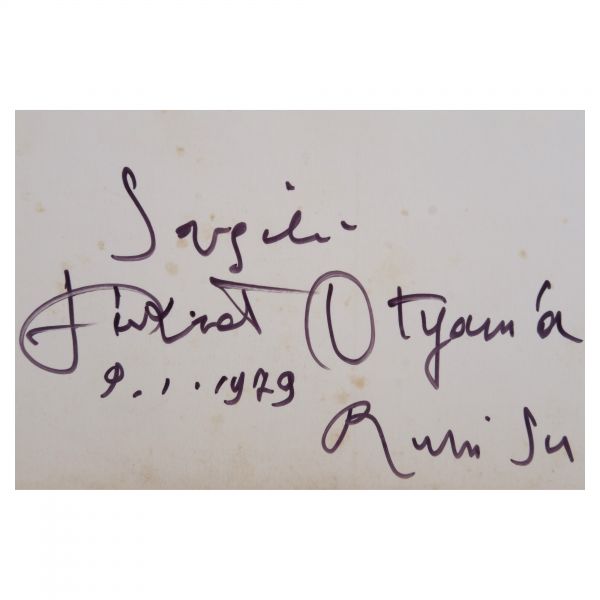 Sevgili
Fikret Otyam'a
9.1.1979
Ruhi Su